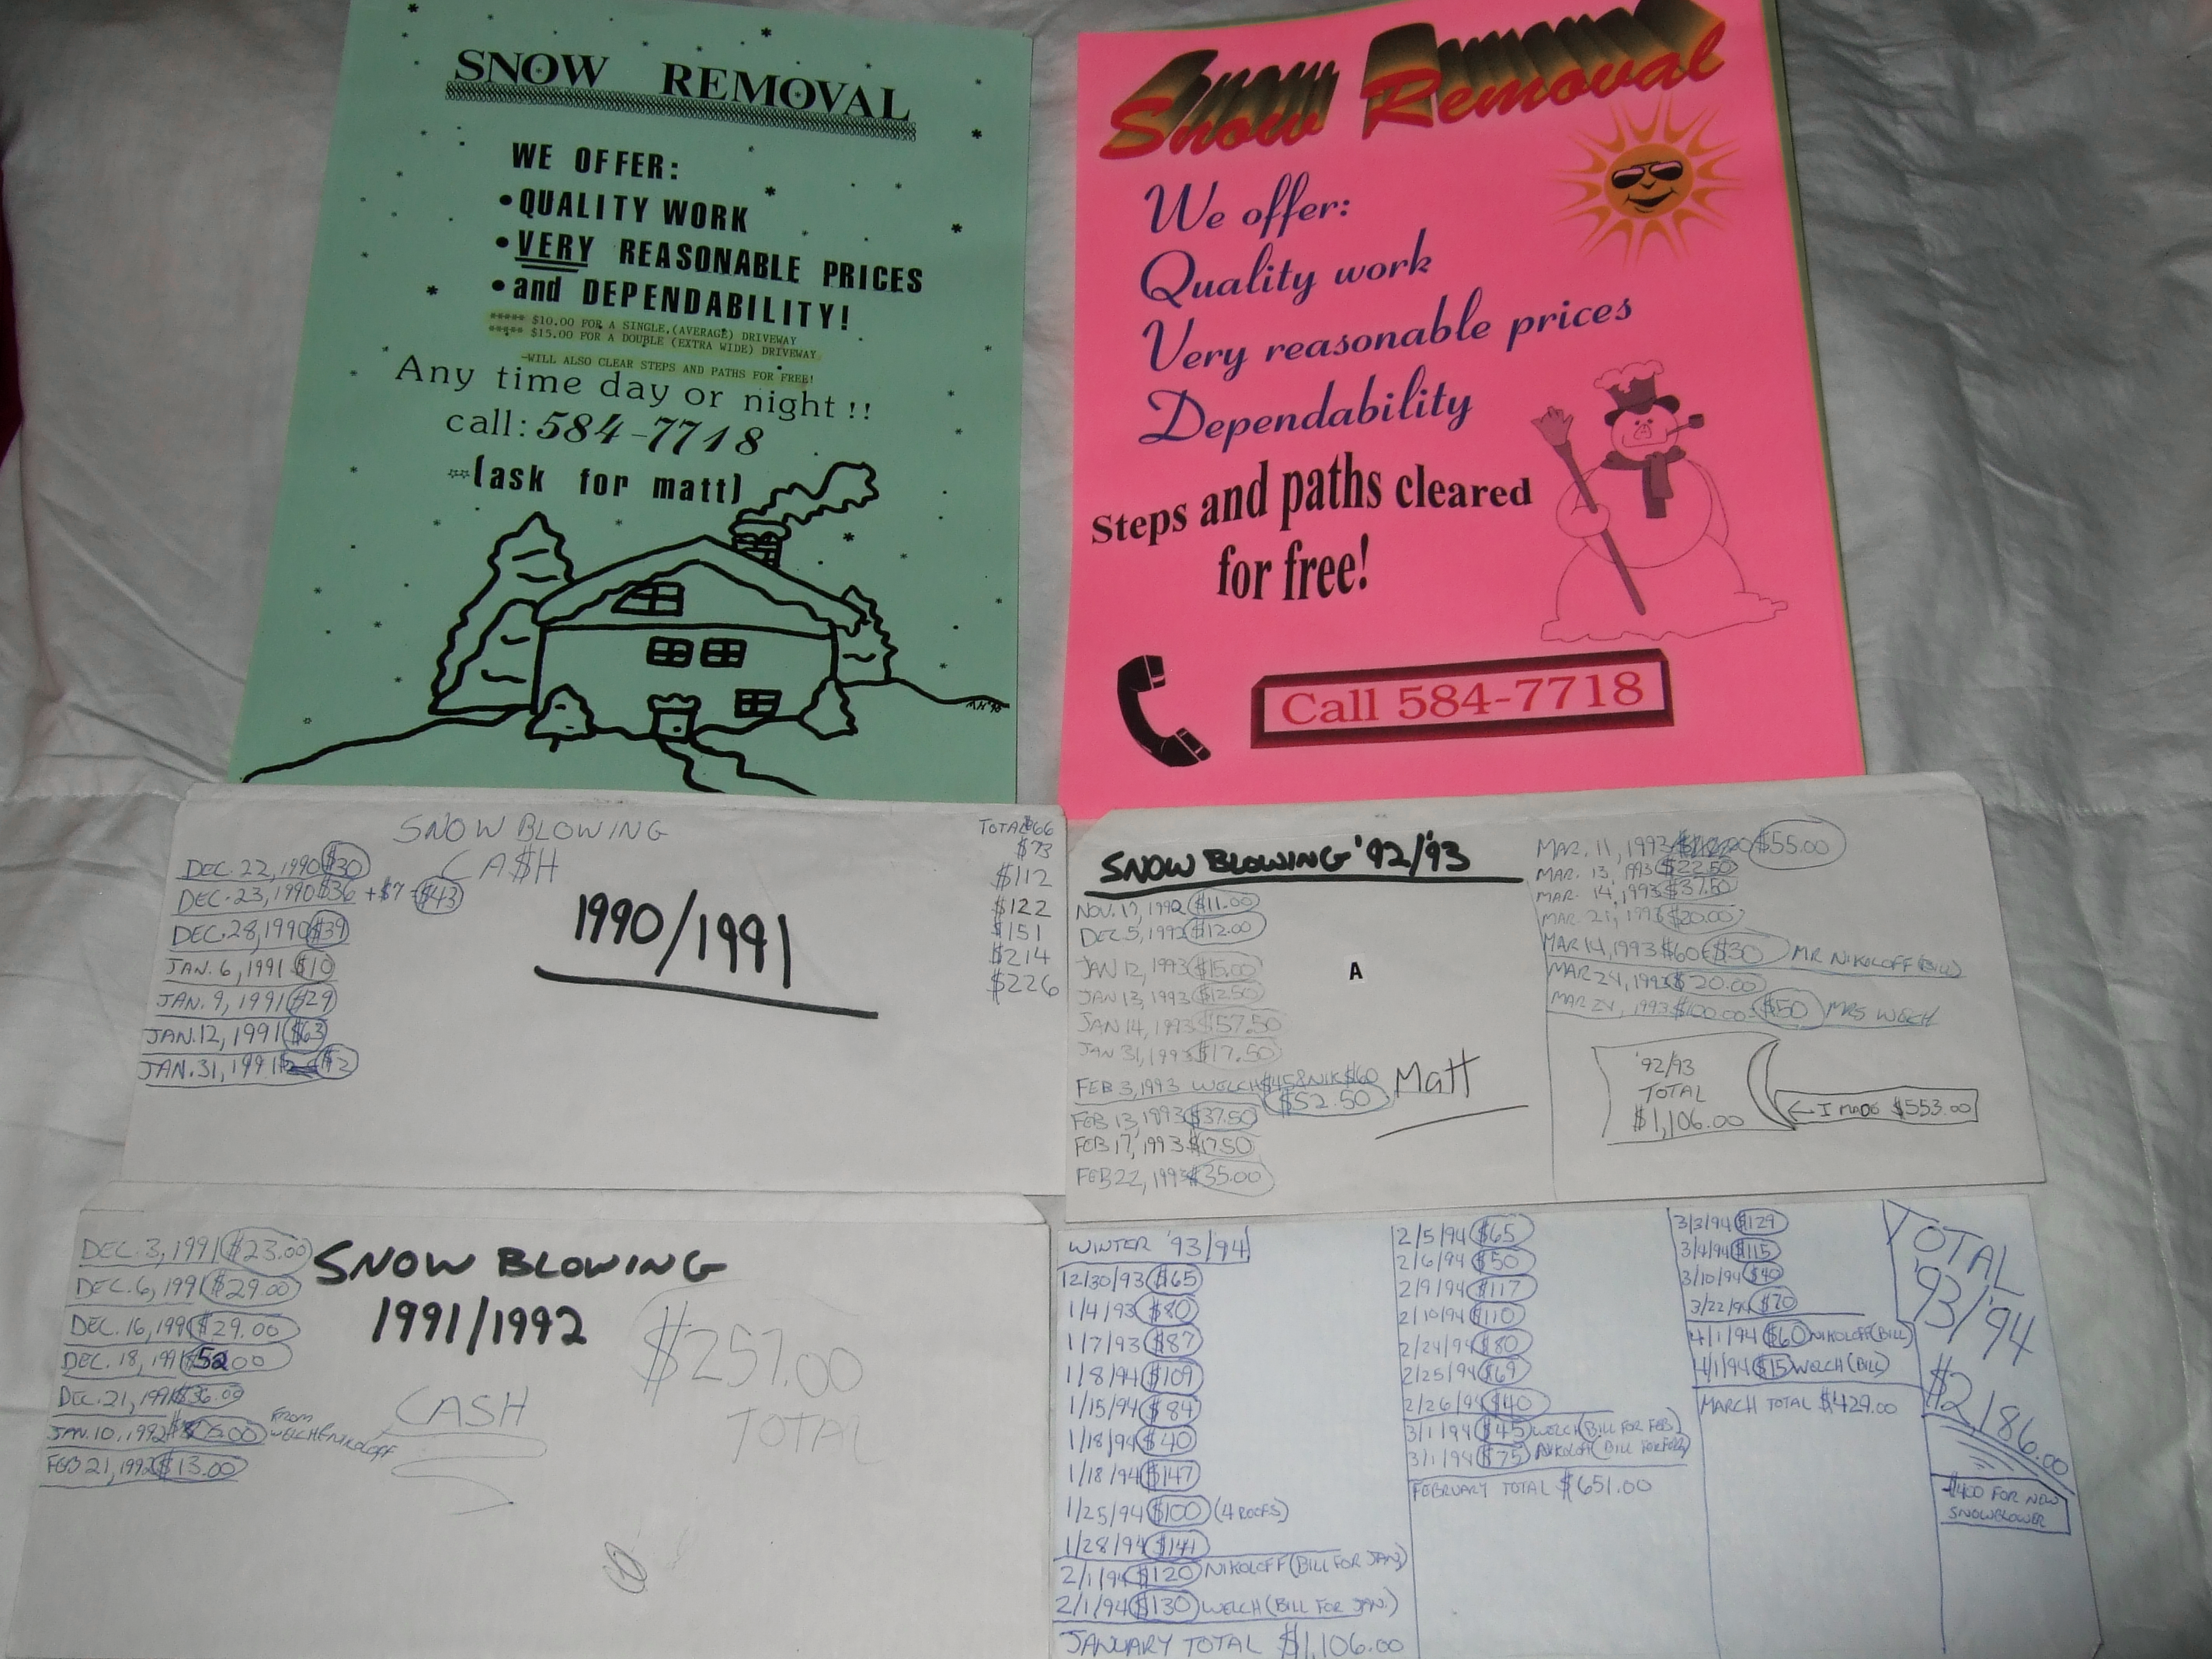 SNOW REMOVAL
WE OFFER:
•QUALITY WORK
•VERY REASONABLE PRICES
•and DEPENDABILITY!
***** $10.00 FOR A SINGLE (AVERAGE) DRIVEWAY
***** $15.00 FOR A DOUBLE (EXTRA WIDE) DRIVEWAY
-WILL ALSO CLEAR STEPS AND PATHS FOR FREE!
Any time day or night!!
call: 584-7718
(ask for matt)
Snow Removal
We offer:
Quality work
Very reasonable prices
Dependability
Steps and paths cleared
for free!
Call 584-7718
SNOW BLOWING
CA$H
1990/1991
DEC. 22, 1990 $30
DEC. 23, 1990 $36 + $7 = $43
DEC. 28, 1990 $39
JAN. 6, 1991 $10
JAN. 9, 1991 $29
JAN. 12, 1991 $63
JAN. 31, 1991 $2
TOTAL
$73
$112
$122
$151
$214
$226
SNOW BLOWING '92/'93
NOV. 17, 1992 $11.00
DEC 5, 1992 $12.00
JAN 12, 1993 $15.00
JAN 13, 1993 $12.50
JAN 14, 1993 $57.50
JAN 31, 1993 $17.50
FEB 3, 1993 WELCH $45 & NIK $60
$52.50
FEB 13, 1993 $37.50
FEB 17, 1993 $17.50
FEB 22, 1993 $35.00
A
Matt
MAR. 11, 1993 $55.00
MAR. 13, 1993 $22.50
MAR. 14, 1993 $37.50
MAR. 21, 1993 $20.00
MAR 14, 1993 $60 - $30 MR NIKOLOFF (BILL)
MAR 24, 1993 $20.00
MAR 24, 1993 $100.00 - $50 MRS WELCH
'92/93
TOTAL
$1,106.00
← I MADE $553.00
DEC. 3, 1991 $23.00
DEC. 6, 1991 $29.00
DEC. 16, 1991 $29.00
DEC. 18, 1991 52.00
DEC. 21, 1991 $36.00
JAN. 10, 1992 FROM WELCH & NIKOLOFF
FEB 21, 1992 $13.00
SNOW BLOWING
1991/1992
CASH
$257.00
TOTAL
WINTER '93/'94
12/30/93 $65
1/4/93 $80
1/7/93 $87
1/8/94 $109
1/15/94 $84
1/18/94 $40
1/18/94 $147
1/25/94 $100 (4 ROOFS)
1/28/94 $141
2/1/94 $120 NIKOLOFF (BILL FOR JAN)
2/1/94 $130 WELCH (BILL FOR JAN.)
JANUARY TOTAL $1,106.00
2/5/94 $65
2/6/94 $50
2/9/94 $117
2/10/94 $110
2/24/94 $80
2/25/94 $69
2/26/94 $40
3/1/94 $45 WELCH (BILL FOR FEB)
3/1/94 $75 NIKOLOFF (BILL FOR FEB)
FEBRUARY TOTAL $651.00
3/3/94 $129
3/4/94 $115
3/10/94 $40
3/22/94 $70
4/1/94 $60 NIKOLOFF (BILL)
4/1/94 $15 WELCH (BILL)
MARCH TOTAL $429.00
TOTAL
'93/'94
$2,186.00
-$400 FOR NEW
SNOWBLOWER